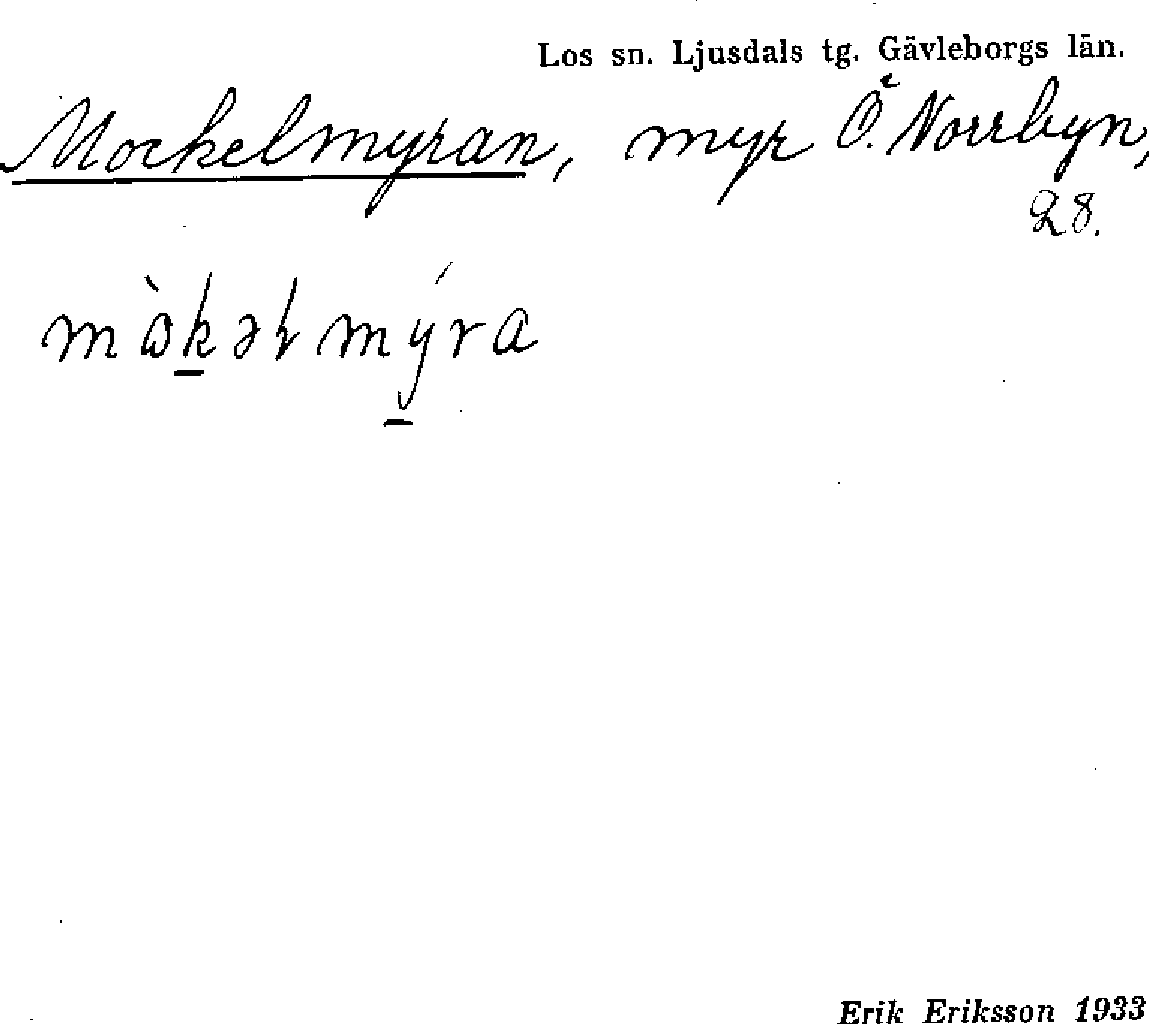 Los sn. Ljusdals tg. Gävleborgs län.
Mockelmyran, myr Ö. Norrbyn,
28.
mὼk̲əɫmý̲ra
Erik Eriksson 1933